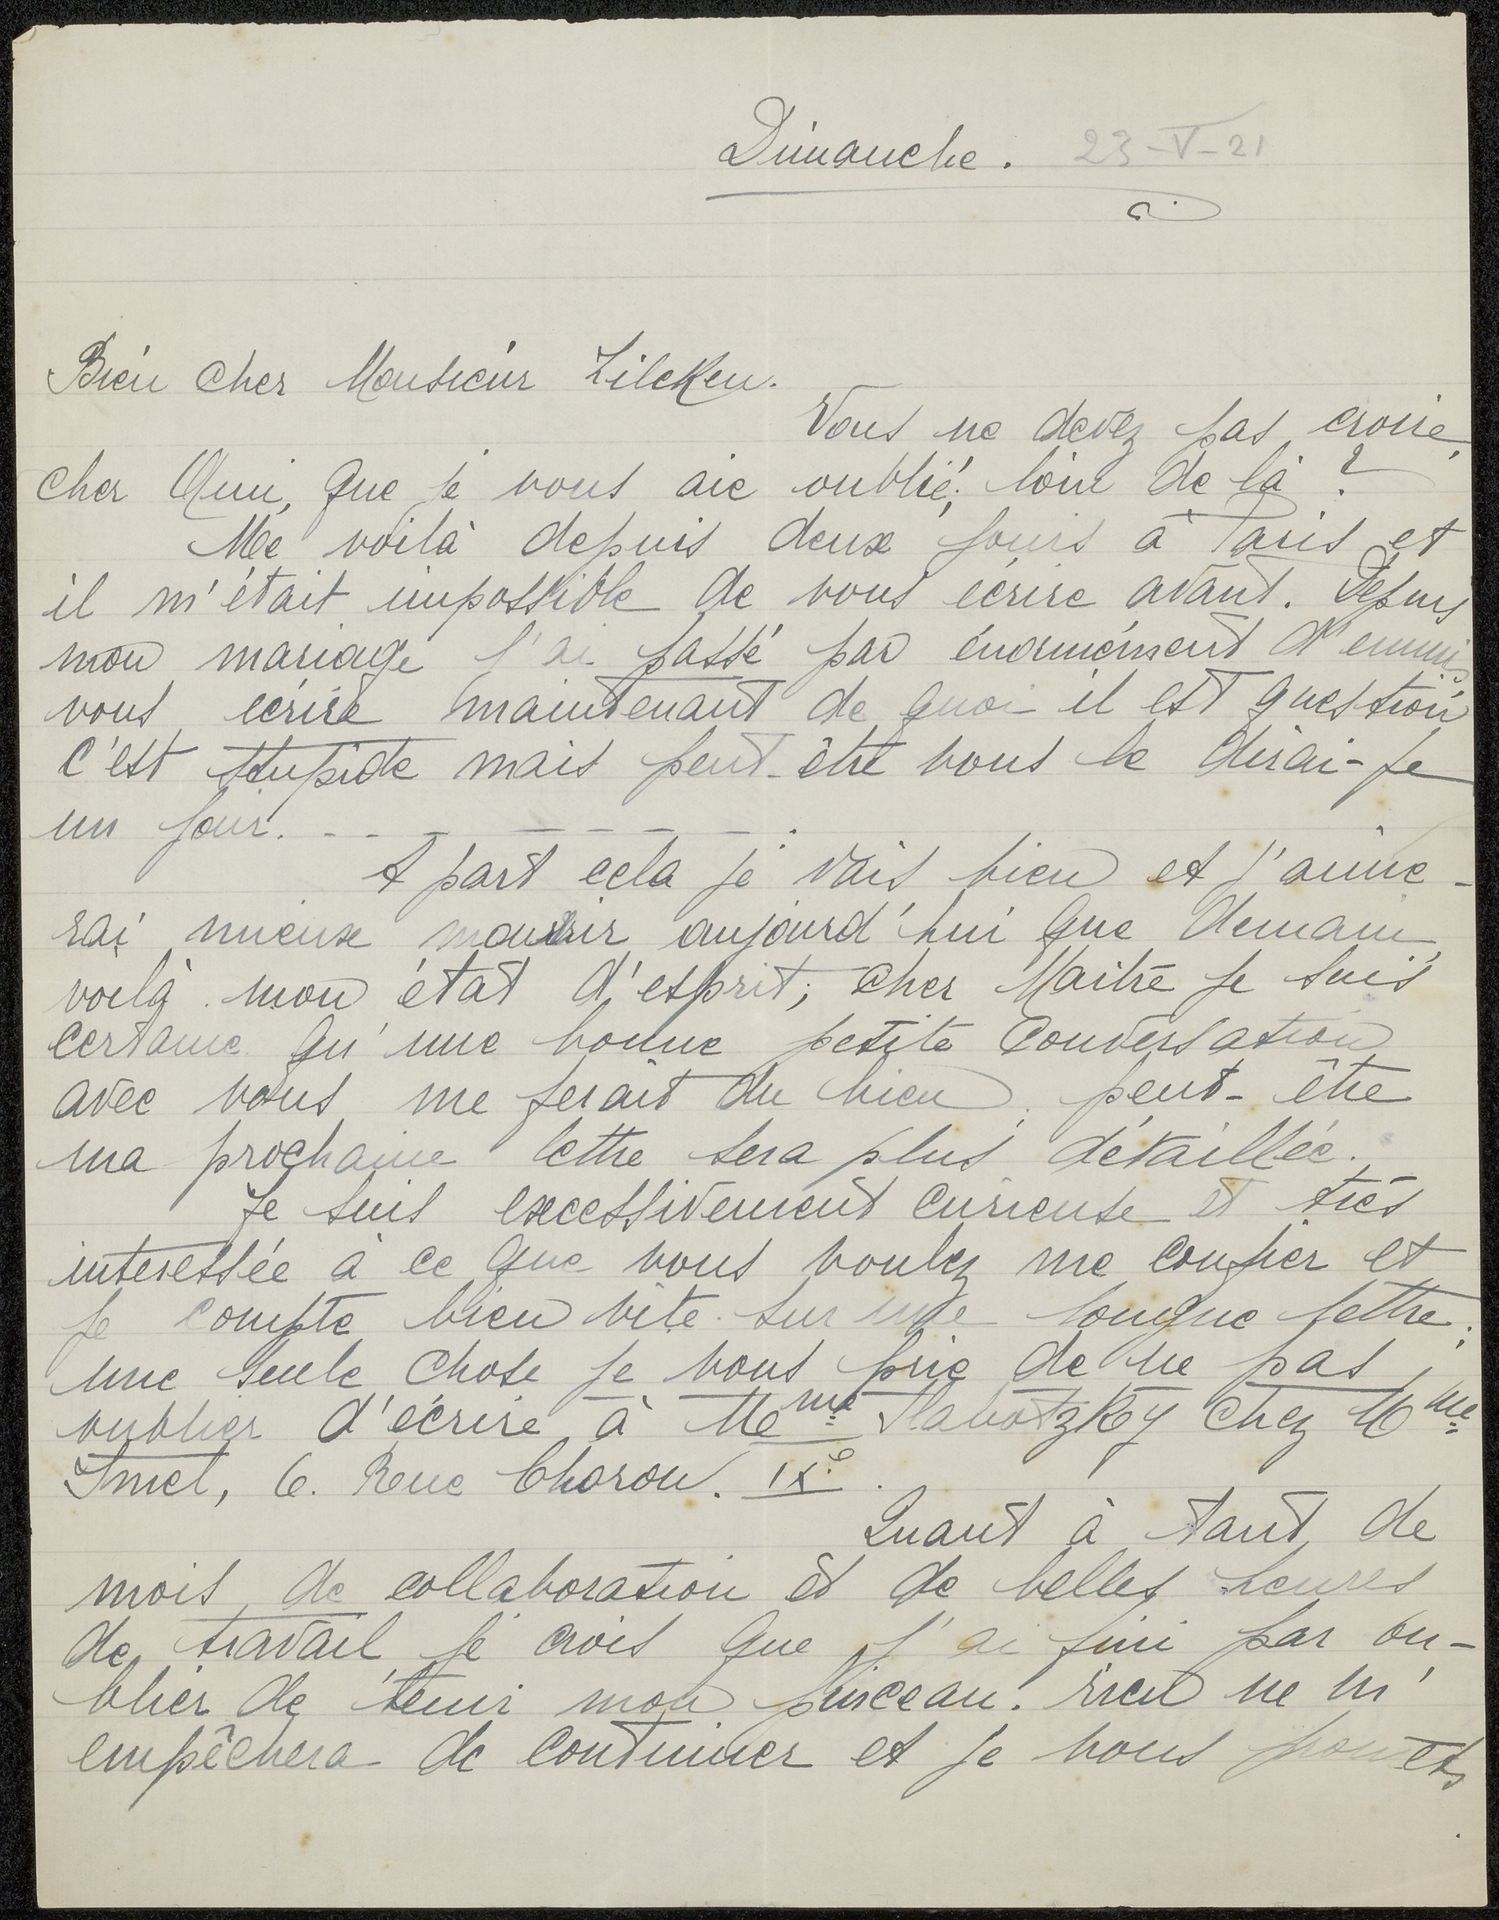 Dimanche. 23-V-21
Bien cher Monsieur Zilcken.
Vous ne devez pas croire,
cher Ami, que je vous aie oublié; loin de là ?
Me voilà depuis deux jours à Paris et
il m'était impossible de vous écrire avant. Depuis
mon mariage j'ai passé par énormément d'ennuis
vous écrire maintenant de quoi il est question
c'est stupide mais peut-être vous le dirai-je
un jour. - - - - - - - - .
A part cela je vais bien et j'aime-
rai mieux mourir aujourd'hui que demain,
voilà mon état d'esprit; cher Maitre je suis
certaine qu'une bonne petite conversation
avec vous me ferait du bien, peut-être
ma prochaine lettre sera plus détaillée.
Je suis excessivement curieuse et très
interessée à ce que vous voulez me confier et
je compte bien vite sur une longue lettre;
une seule chose je vous prie de ne pas
oublier d'écrire à Mme chez Mme
6. Rue Choron. IXe.
Quant à tant de
mois de collaboration et de belles heures
de travail je crois que j'ai fini par ou-
blier de tenir mon pinceau. Rien ne m'
empêchera de continuer et je vous promets